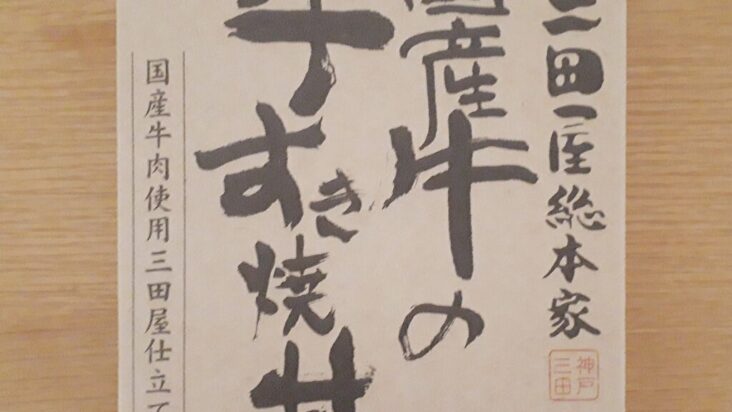 三田屋総本家
神戸
三田
国産牛の
牛すき焼丼
国産牛肉使用三田屋仕立て